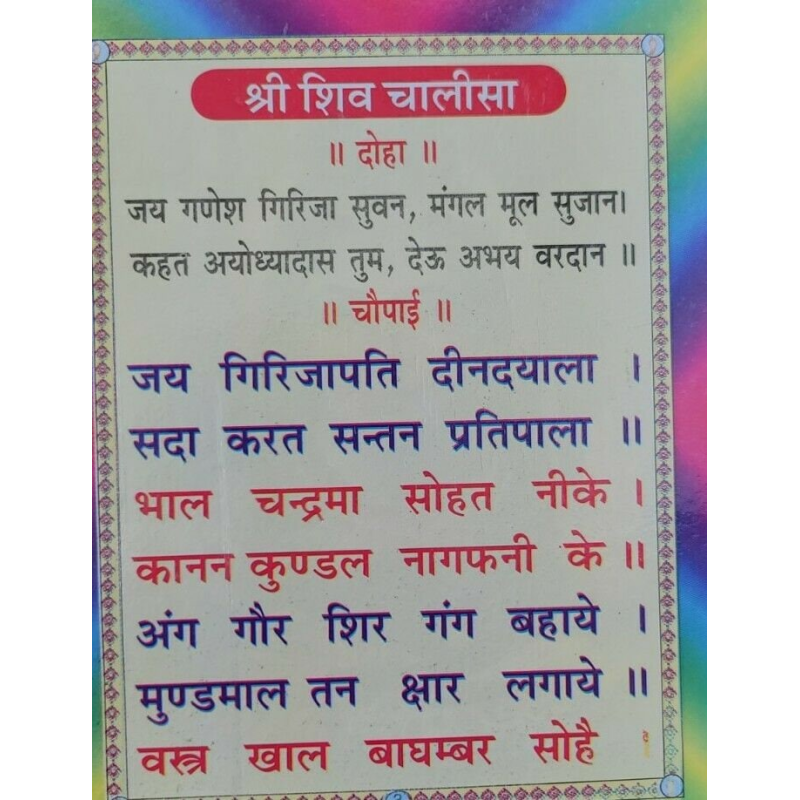 श्री शिव चालीसा
॥ दोहा ॥
जय गणेश गिरिजा सुवन, मंगल मूल सुजान।
कहत अयोध्यादास तुम, देऊ अभय वरदान ॥
॥ चौपाई ॥
जय गिरिजापति दीनदयाला ।
सदा करत सन्तन प्रतिपाला ॥
भाल चन्द्रमा सोहत नीके ।
कानन कुण्डल नागफनी के ॥
अंग गौर शिर गंग बहाये ।
मुण्डमाल तन क्षार लगाये ॥
वस्त्र खाल बाघम्बर सोहै ।